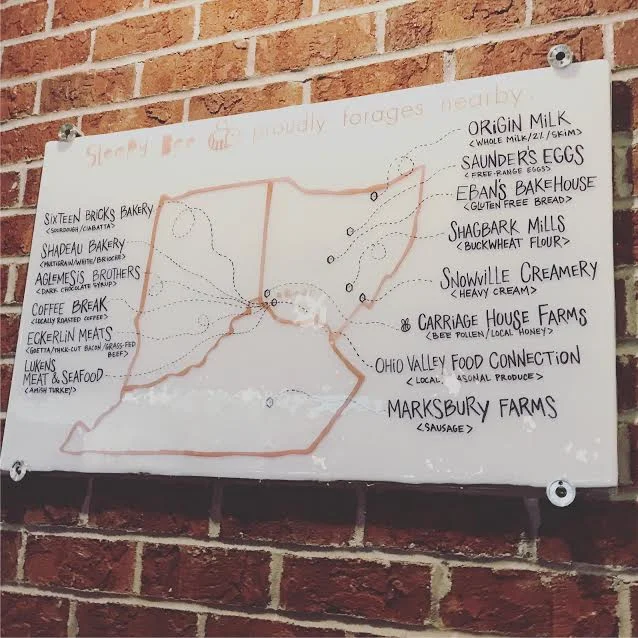 Sleepy Bee proudly forages nearby.
SIXTEEN BRICKS BAKERY
<SOURDOUGH/CIABATTA>
SHADEAU BAKERY
<MULTIGRAIN/WHITE/BRIOCHE>
AGLEMESIS BROTHERS
<DARK CHOCOLATE SYRUP>
COFFEE BREAK
<LOCALLY ROASTED COFFEE>
ECKERLIN MEATS
<GOETTA/THICK-CUT BACON/GRASS-FED
BEEF>
LUKENS
MEAT & SEAFOOD
<AMISH TURKEY>
ORIGIN MILK
<WHOLE MILK/2%/SKIM>
SAUNDER'S EGGS
<FREE-RANGE EGGS>
EBAN'S BAKEHOUSE
<GLUTEN FREE BREAD>
SHAGBARK MILLS
<BUCKWHEAT FLOUR>
SNOWVILLE CREAMERY
<HEAVY CREAM>
CARRIAGE HOUSE FARMS
<BEE POLLEN/LOCAL HONEY>
OHIO VALLEY FOOD CONNECTION
<LOCAL SEASONAL PRODUCE>
MARKSBURY FARMS
<SAUSAGE>